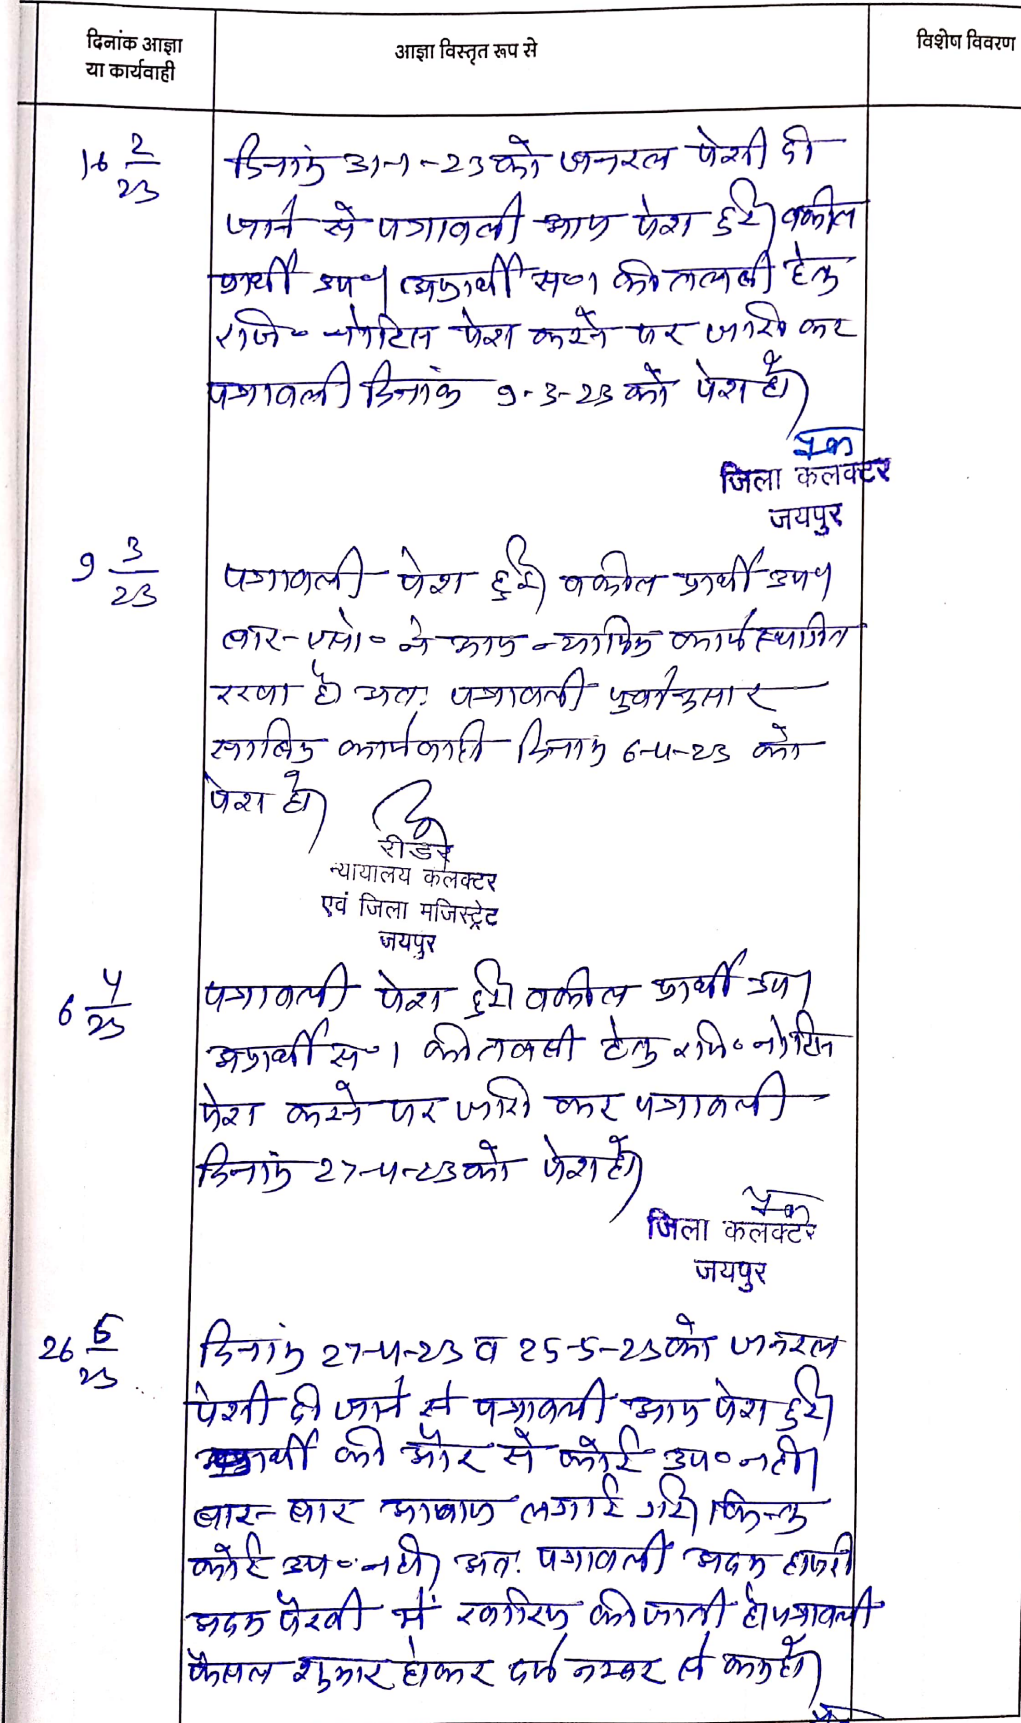 दिनांक आज्ञा
या कार्यवाही
आज्ञा विस्तृत रूप से
विशेष विवरण
16 2/23
दिनांक 31-1-23 को जनरल पेशी दी
जाने से पत्रावली आज पेश हुई। वकील
प्रार्थी उप०। अप्रार्थी स०1 की तलबी हेतु
रजि० नोटिस पेश करने पर जारी कर
पत्रावली दिनांक 9-3-23 को पेश हो।
जिला कलक्टर
जयपुर
9 3/23
पत्रावली पेश हुई। वकील प्रार्थी उप०।
बार-एसो० ने आज न्यायिक कार्य स्थगित
रखा है अतः पत्रावली पूर्वानुसार
साबिक कार्यवाही दिनांक 6-4-23 को
पेश हो।
रीडर
न्यायालय कलक्टर
एवं जिला मजिस्ट्रेट
जयपुर
6 4/23
पत्रावली पेश हुई। वकील प्रार्थी उप।
अप्रार्थी स०1 की तलबी हेतु रजि० नोटिस
पेश करने पर जारी कर पत्रावली
दिनांक 27-4-23 को पेश हो।
जिला कलक्टर
जयपुर
26 5/23
दिनांक 27-4-23 व 25-5-23 को जनरल
पेशी दी जाने से पत्रावली आज पेश हुई।
प्रार्थी की और से कोई उप० नही।
बार-बार आवाज लगाई गई। किन्तु
कोई उप० नही। अतः पत्रावली अदम हाजरी
अदम पैरवी में खारिज की जाती है। पत्रावली
फैसल शुमार होकर दर्ज नम्बर से कम हो।